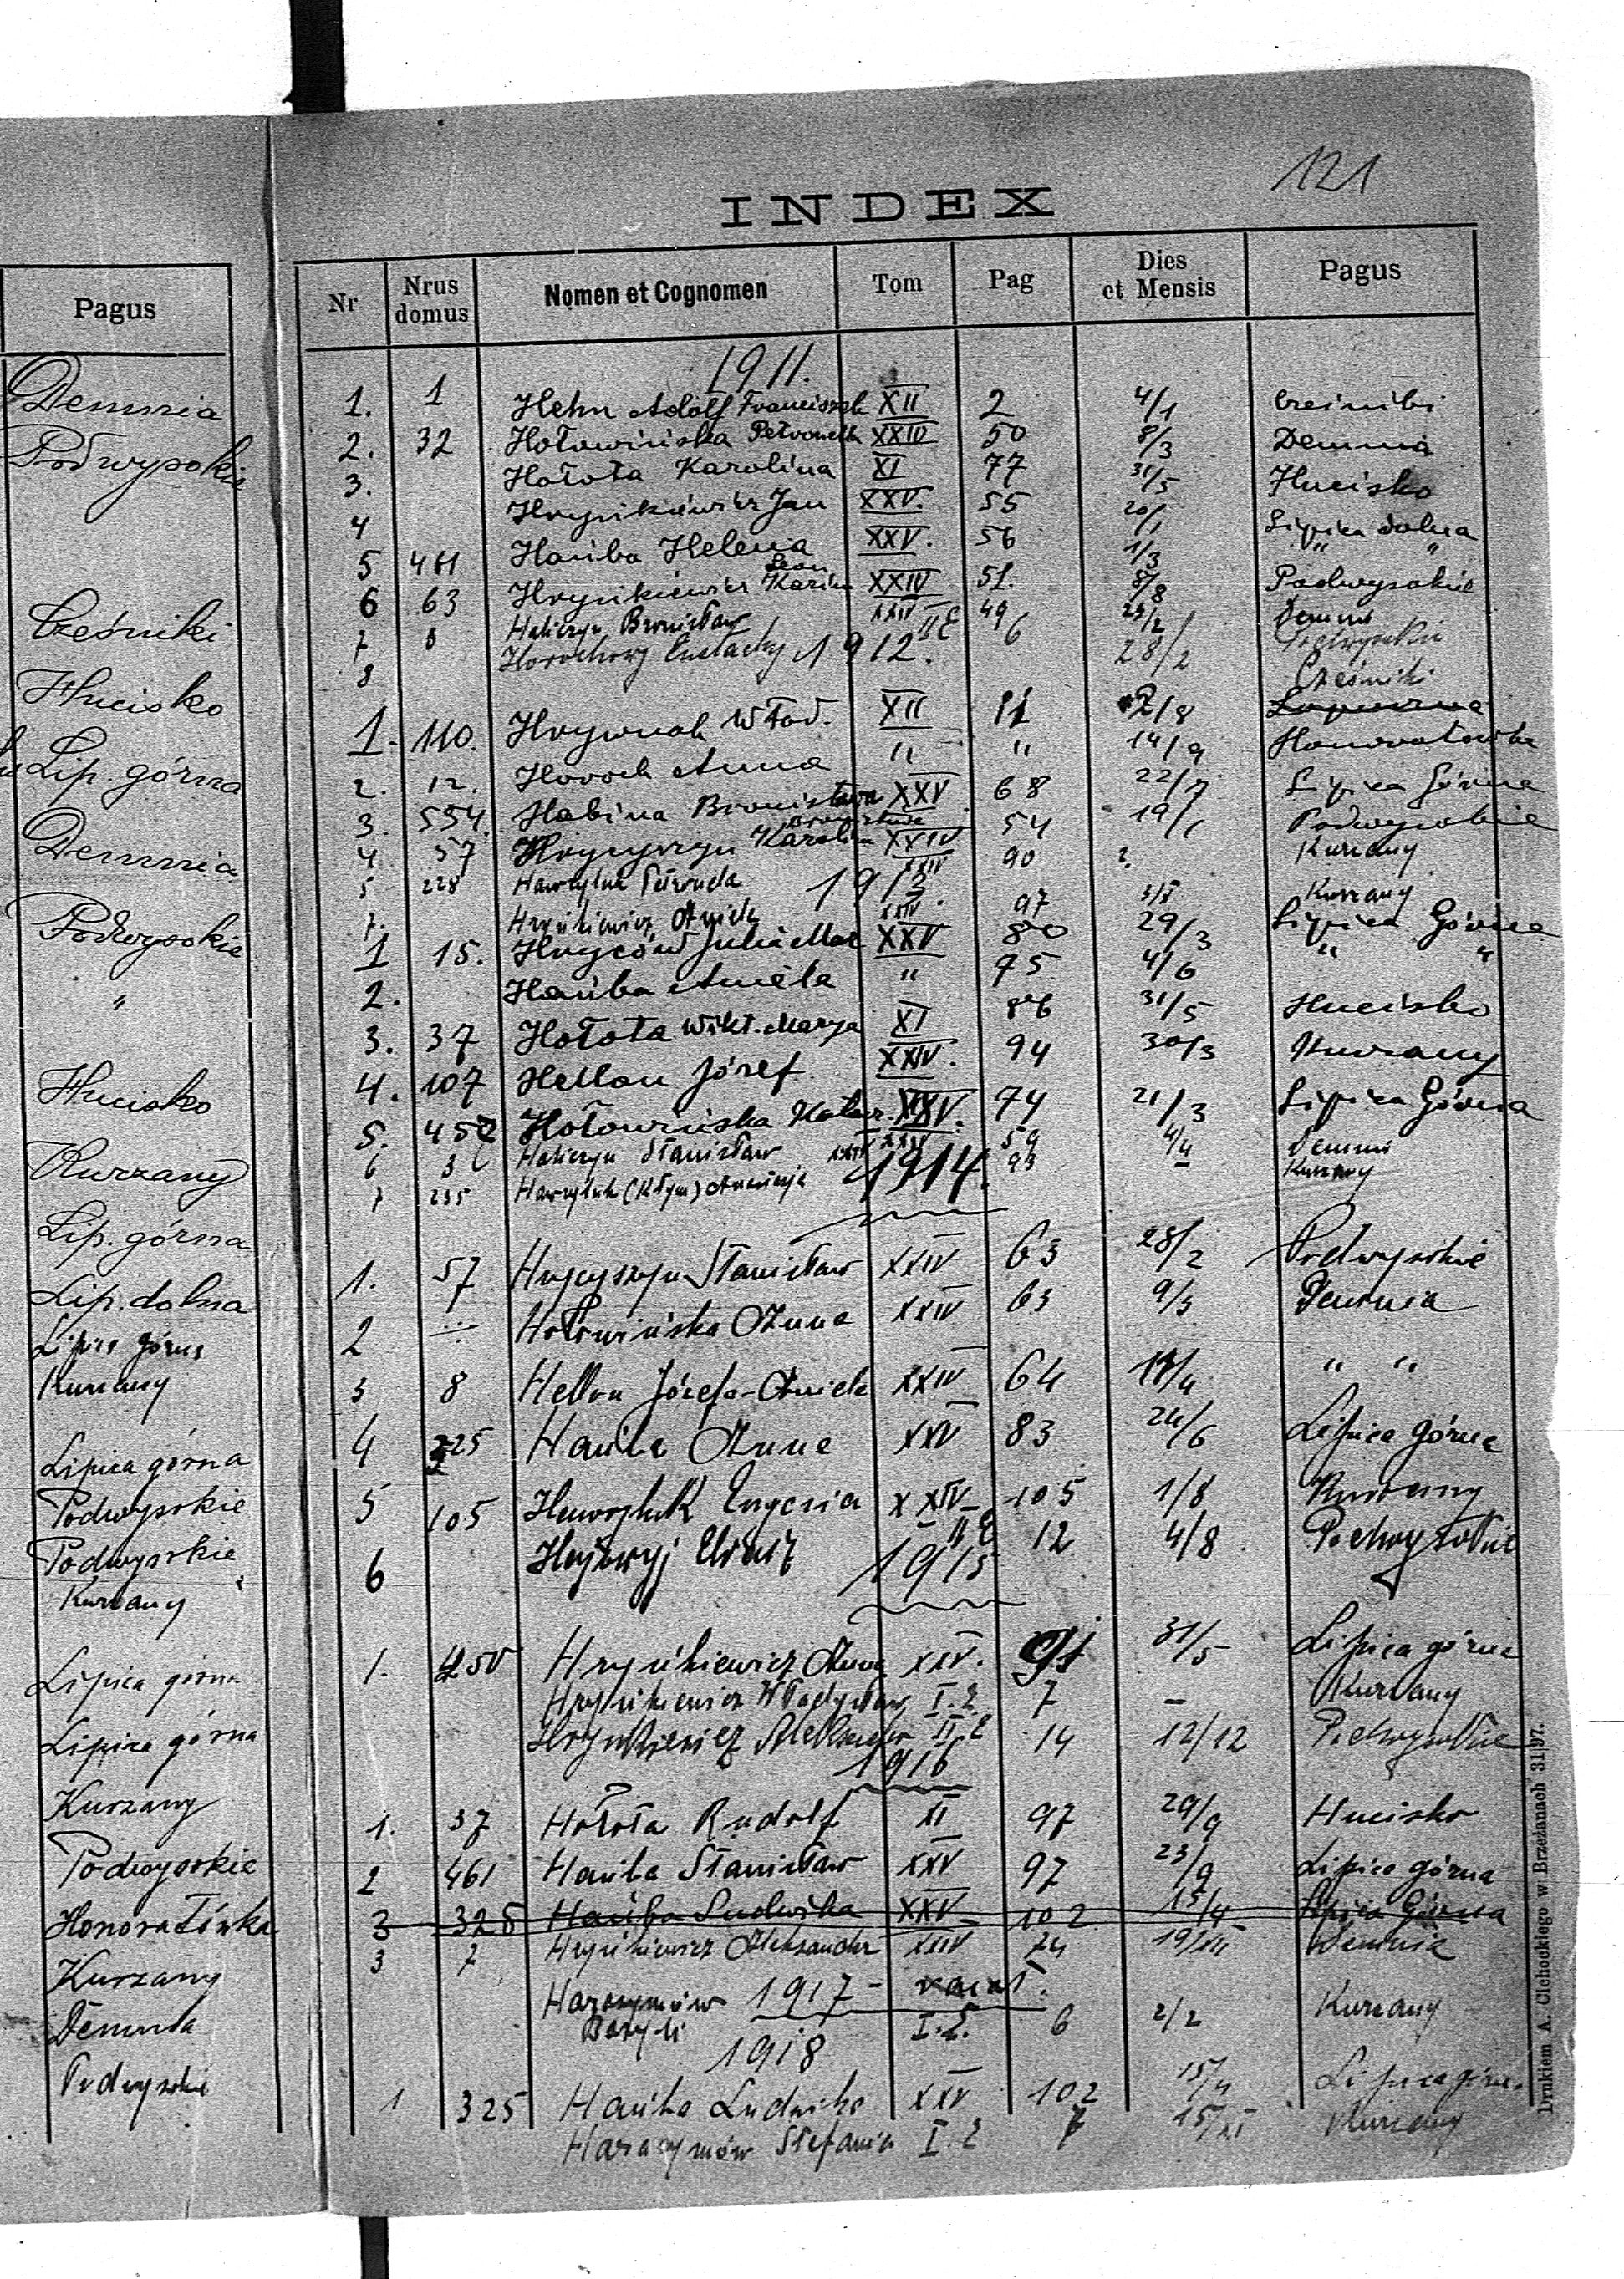 Pagus
Demnia
Podwysokie
Cześniki
Hucisko
Lip. górna
Demnia
Podwysokie
"
Hucisko
Kurzany
Lip. górna
Lip. dolna
Lipica Górna
Kurzany
Lipica górna
Podwysokie
Podwysokie
Kurzany
Lipica górna
Lipica górna
Kurzany
Podwysokie
Honoratówka
Kurzany
Demnia
Podwysokie
121
INDEX
Nr Nrus domus Nomen et Cognomen Tom Pag Dies et Mensis Pagus
1911.
1. 1 Hehn Adolf Franciszek XII 2 4/1 Cześniki
2. 32 Hołowińska Petronella XXIV 50 8/3 Demnia
3. Hołota Karolina XI 77 31/5 Hucisko
4 Hrynikiewicz Jan XXV. 55 20/1 Lipica dolna
5 461 Hańba Helena XXV. 56 1/3 " "
6 63 Hrynikiewicz Leon Kazim XXIV 51. 8/8 Podwysokie
7 8 Haliczyn Bronisław XXIV 49 23/2 Demnia
8 Horochowy Eustachy II E 6 28/2 Podwysokie
1912.
1. 110. Hrywnak Wład. XII 11 2/8 Cześniki
2. 12. Horoch Anna " " 14/9 Honoratówka
3. 554. Habina Bronisława XXV 68 22/7 Lipica Górna
4. 57 Hrycyszyn Karolina XXIV 54 19/1 Podwysokie
5 228 Hawryluk Petronela XXIV 90 ? Kurzany
1913.
7. Hrynkiewicz Aniela XXIV 97 3/5 Kurzany
1 15. Hryców Julia Mar XXV 80 29/3 Lipica Górna
2. Hańba Amela " 75 4/6 " "
3. 37 Hołota Wikt. Marya XI 86 31/5 Hucisko
4. 107 Hellon Józef XXIV. 94 30/3 Kurzany
5. 452 Hołowińska Katar. XXV. 74 21/3 Lipica Górna
6 8 Haliczyn Stanisław XXIV 59 4/4 Demnia
7 235 Hawryluk (Kłym) Anastazja XXIV 93 – Kurzany
1914.
1. 57 Hrycyszyn Stanisław XXIV 63 28/2 Podwysokie
2 Hołowińska Anna XXIV 63 9/3 Demnia
3 8 Hellon Józefa-Aniela XXIV 64 19/4 " "
4 325 Hańba Anna XXV 83 24/6 Lipica Górna
5 105 Hawryluk Eugenia XXIV 105 1/8 Kurzany
6 II E 12 4/8 Podwysokie
1915
1. 450 Hrynikiewicz Anna XXV. 91 31/5 Lipica górna
Hrynikiewicz Władysław I. E 7 – Kurzany
Hrynkiewicz Aleksander II E 14 12/12 Podwysokie
1916
1. 37 Hołota Rudolf XI 97 29/9 Hucisko
2 461 Hańba Stanisław XXV 97 23/9 Lipica górna
3 325 Hańba Ludwika XXV 102 15/4 Lipica Górna
3 7 Hrynikiewicz Aleksander XXIV 74 19/XII Demnia
1917 – vacat.
Harasymów Bazyli I. E. 6 2/2 Kurzany
1918
1 325 Hańba Ludwika XXV 102 15/4 Lipica górna
Harasymów Stefania I E 7 15/XI Kurzany
Drukiem A. Cichockiego w Brzeżanach 31/97.